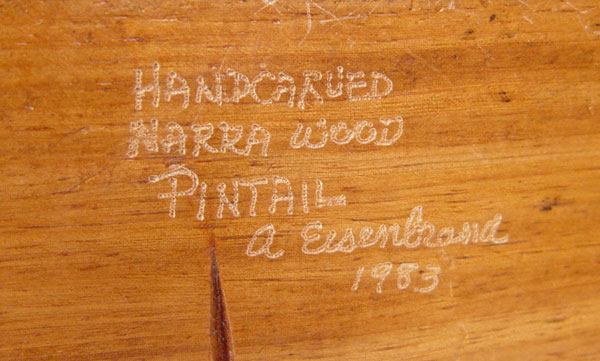 HANDCARVED
NARRA WOOD
PINTAIL
A Eisenbrand
1983